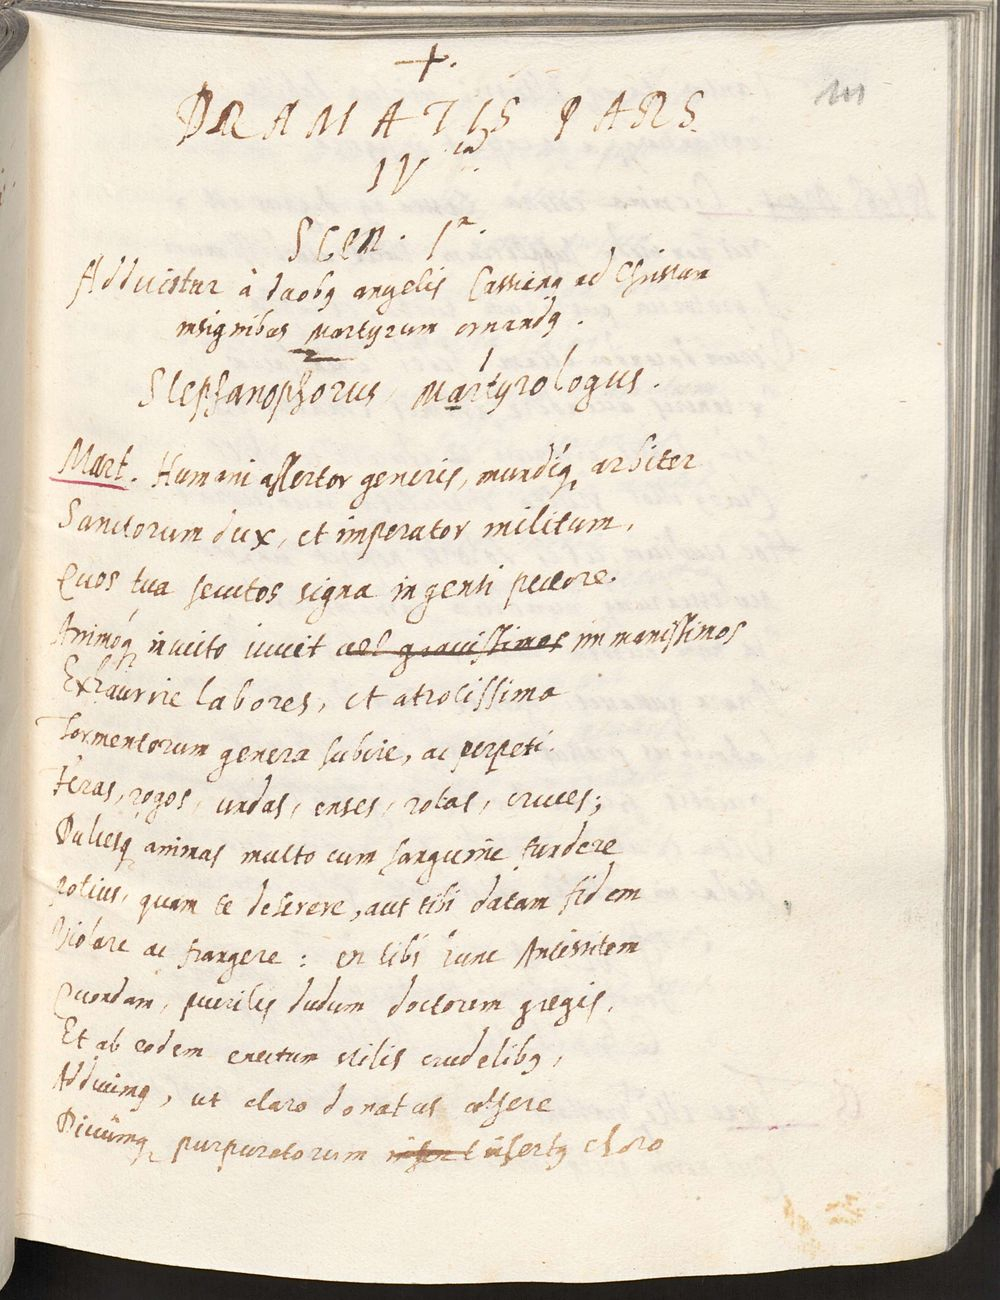 +.
111
DRAMATIS PARS.
IV.ta
SCEN. Iª.
Adducitur à duobꝰ angelis Cassianꝰ ad Christum
insignibus Martyrum ornandꝰ.
Stephanophorus, Martyrologus.
Mart. Humani assertor generis, mundiq, arbiter
Sanctorum dux, et imperator militum,
Quos tua secutos signa ingenti pectore.
Animóq, invicto iuvit vel gravissimos immanissimos
Exhaurire labores, et atrocissima
Tormentorum genera subire, ac perpeti.
Feras, rogos, undas, enses, rotas, cruces;
Dulcesq, animas multo cum sanguine fundere
Potius, quam te deserere, aut tibi datam fidem
Violare ac frangere: en tibi hunc Antistitem
Quondam, puerilis dudum doctorem gregis,
Et ab eodem enectum stilis crudelibꝰ,
Adducimꝰ, ut claro donatus
Divûmq, purpuratorum inser insertꝰ choro